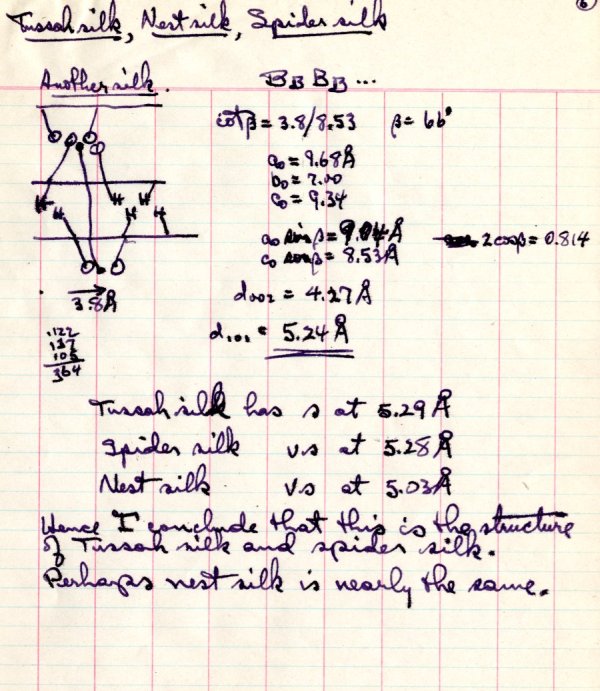 6
Tussah silk, Nest silk, Spider silk
Another silk.
B B B B ...
cot β = 3.8/8.53 β = 66°
a₀ = 9.68 Å
b₀ = 7.00
c₀ = 9.34
a₀ sin β = 9.04 Å
2 cos β = 0.814
c₀ sin β = 8.53 Å
H H H
H H H
d₀₀₂ = 4.27 Å
3.8 Å
d₁₀₁ = 5.24 Å
.122
.137
.105
.364
Tussah silk has s at 5.29 Å
Spider silk vs at 5.28 Å
Nest silk vs at 5.03 Å
Hence I conclude that this is the structure
of Tussah silk and spider silk.
Perhaps nest silk is nearly the same.